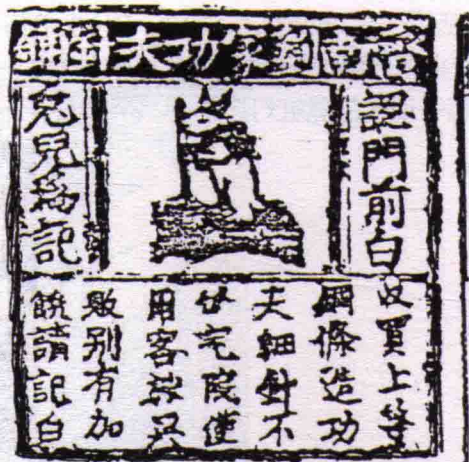 濟南劉家功夫針鋪
認門前白
兔兒為記
收買上等
鋼條造功
夫細針不
宅院使
用客
販別有加
饒請記白